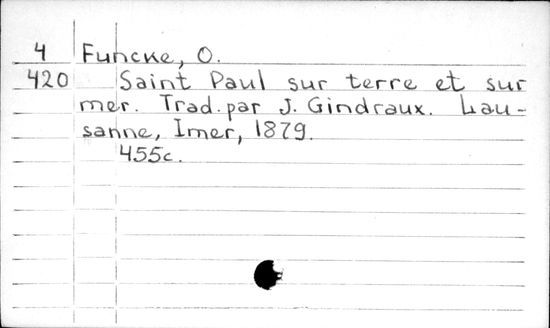 4 Funcke, O.
420 Saint Paul sur terre et sur
mer. Trad. par J. Gindraux. Lau-
sanne, Imer, 1879.
455c.